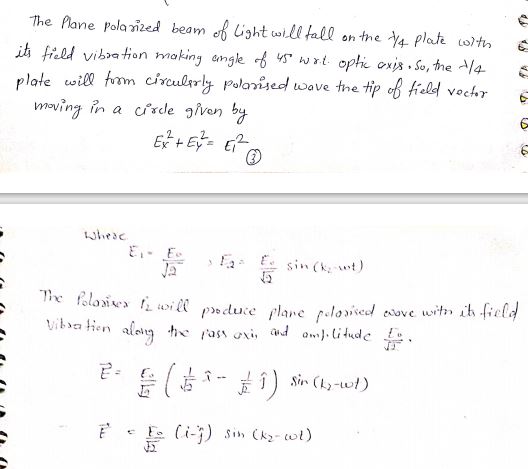 The Plane polarized beam of Light will fall on the λ/4 plate with
its field vibration making angle of 45° w.r.t. optic axis. So, the λ/4
plate will form circularly polarised wave the tip of field vector
moving in a circle given by
Ex² + Ey² = E1²
③
where
E1 = E0/√2 , E2 = E0/√2 sin (kz-wt)
The Polariser P2 will produce plane polarised wave with its field
vibration along the pass axis and amplitude E0/√2.
E⃗ = E0/√2 (1/√2 î - 1/√2 ĵ) sin (kz-wt)
E⃗ = E0/√2 (i-ĵ) sin (kz-wt)